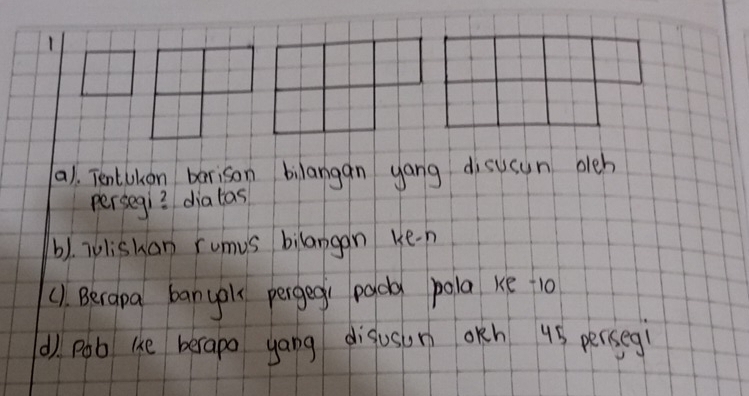 1
a). Tentukan barisan bilangan yang disusun oleh
persegi² diatas
b). Tuliskan rumus bilangan ke-n
c). Berapa banyak pergegi pada pola ke-10
d). Pola ke berapa yang disusun oleh 45 persegi